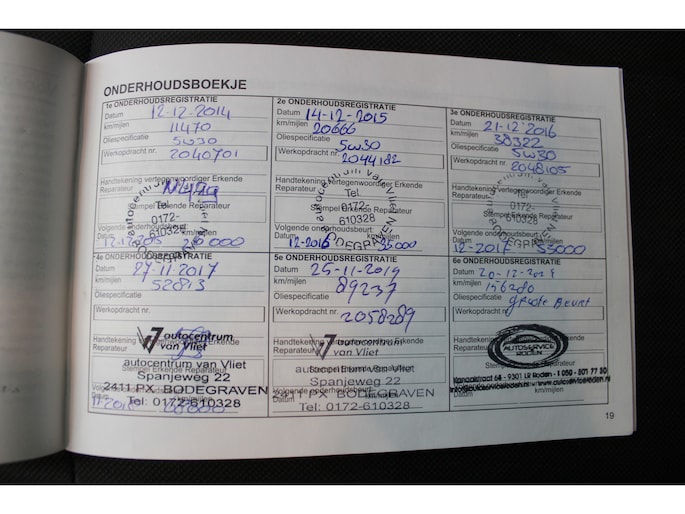 ONDERHOUDSBOEKJE
1e ONDERHOUDSREGISTRATIE
Datum 12-12-2014
km/mijlen 11470
Oliespecificatie 5W30
Werkopdracht nr. 2040701
Handtekening vertegenwoordiger Erkende
Reparateur
Stempel Erkende Reparateur
autocentrum van Vliet
Tel.
0172-
610328
BODEGRAVEN
Volgende onderhoudsbeurt:
Datum 12-12-2015 km/mijlen
2e ONDERHOUDSREGISTRATIE
Datum 14-12-2015
km/mijlen 20666
Oliespecificatie 5W30
Werkopdracht nr. 2044182
Handtekening vertegenwoordiger Erkende
Reparateur
Stempel Erkende Reparateur
autocentrum van Vliet
Tel.
0172-
610328
BODEGRAVEN
Volgende onderhoudsbeurt:
12-2016 35000
3e ONDERHOUDSREGISTRATIE
Datum 21-12-2016
km/mijlen 38322
Oliespecificatie 5W30
Werkopdracht nr. 2048105
Handtekening vertegenwoordiger Erkende
Reparateur
Stempel Erkende Reparateur
Tel.
0172-
610328
BODEGRAVEN
Volgende onderhoudsbeurt:
12-2017 55000
4e ONDERHOUDSREGISTRATIE
Datum 27-11-2017
km/mijlen 52813
Oliespecificatie
Werkopdracht nr.
Handtekening
Reparateur
autocentrum
van Vliet
autocentrum van Vliet
Spanjeweg 22
2411 PX BODEGRAVEN
Tel: 0172-610328
11-2018
5e ONDERHOUDSREGISTRATIE
Datum 25-11-2019
km/mijlen 89237
Oliespecificatie
Werkopdracht nr. 2058289
Handtekening
Reparateur
autocentrum
van Vliet
autocentrum van Vliet
Spanjeweg 22
2411 PX BODEGRAVEN
Tel: 0172-610328
6e ONDERHOUDSREGISTRATIE
Datum 20-12-2024
km/mijlen 156280
Oliespecificatie groote Beurt
Werkopdracht nr.
Handtekening vertegenwoordiger Erkende
Reparateur
AUTOSERVICE
RODEN
Stempel Erkende Reparateur
Kanaalstraat 64 - 9301 LR Roden - T 050 - 501 77 30
info@autoserviceroden.nl - www.autoserviceroden.nl
Datum km/mijlen
19